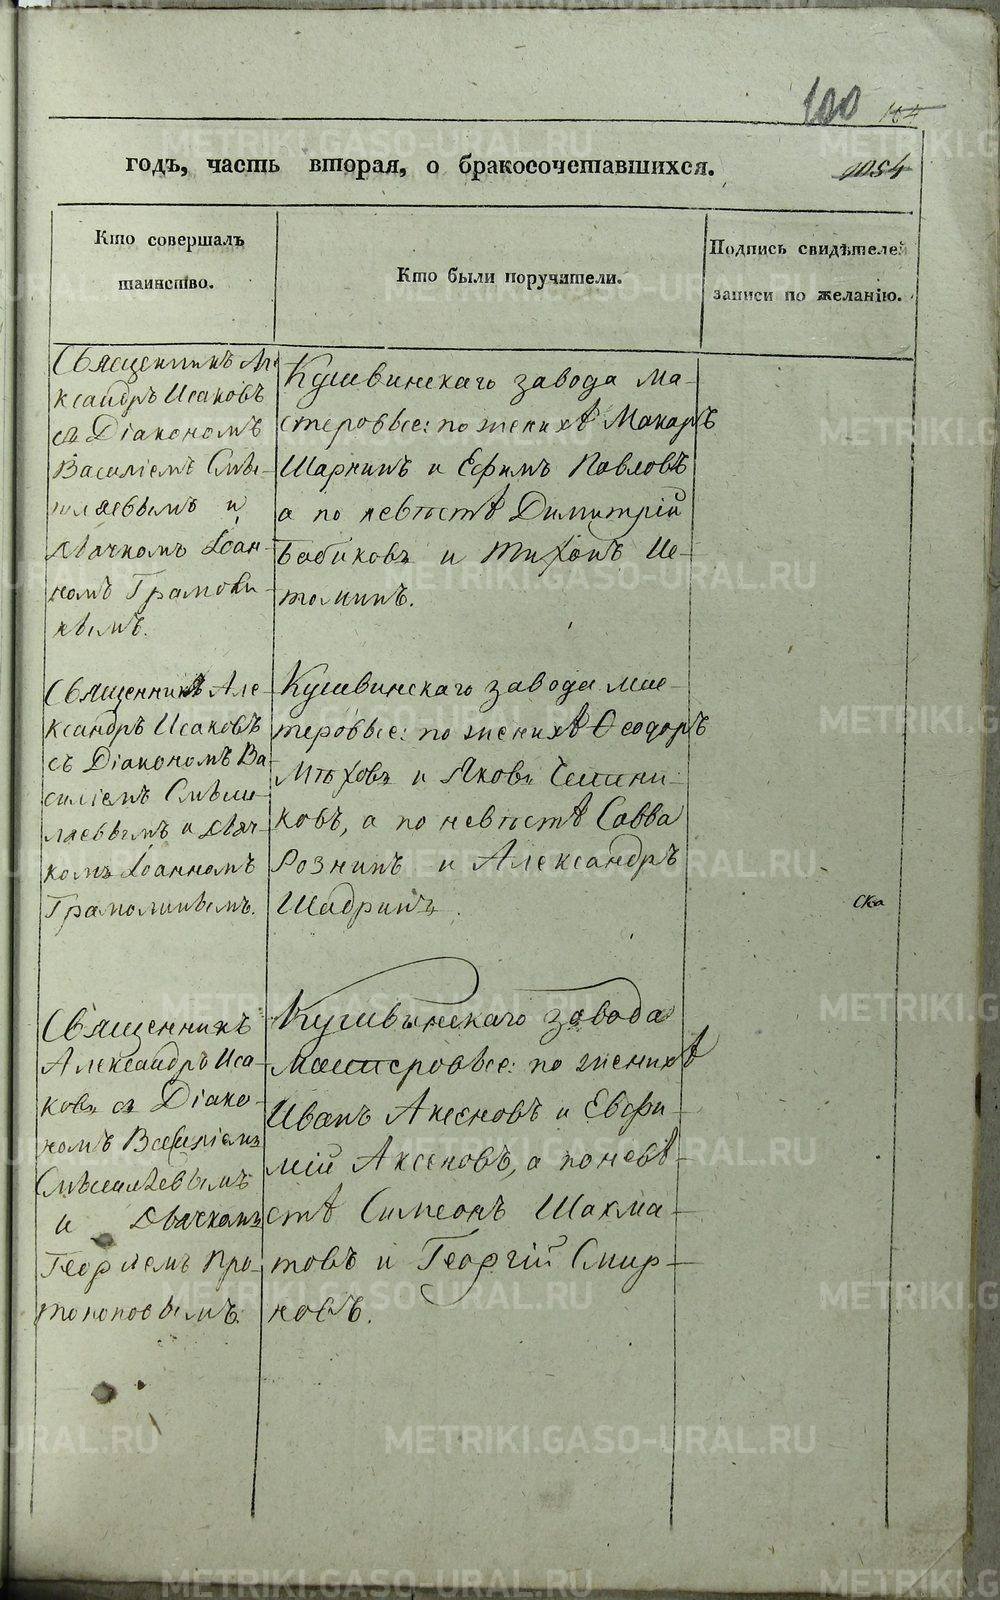 100
годъ, часть вторая, о бракосочетавшихся.
1054
Кто совершалъ
таинство.
Кто были поручители.
Подпись свидѣтелей
записи по желанію.
Священникъ Але
ксандръ Исаковъ
съ Діакономъ
Василіемъ Смы-
шляевымъ и
дьячкомъ Іоан-
номъ
Кушвинскаго завода Ма-
стеровые: по женихѣ Макаръ
и Ефимъ Павловъ
а по невѣстѣ Димитрій
Бабиковъ и Тихонъ Ис-
томинъ.
Священникъ Але-
ксандръ Исаковъ
съ Діакономъ Ва-
силіемъ Смыш-
ляевымъ и дьяч-
комъ Іоанномъ
Кушвинскаго завода мас-
теровые: по женихѣ Ѳеодоръ
и Яковъ
ковъ, а по невѣстѣ Савва
и Александръ
Шадринъ.
ска
Священникъ
Александръ Иса-
ковъ съ Діако-
номъ Василіемъ
и дьячкомъ
Георгіемъ Про-
топоповымъ.
Кушвинскаго завода
мастеровые: по женихѣ
Иванъ Аксеновъ и Евфи-
мій Аксеновъ, а по невѣ-
стѣ Симеонъ Шахма-
товъ и Георгій Смир-
новъ.
METRIKI.GASO-URAL.RU